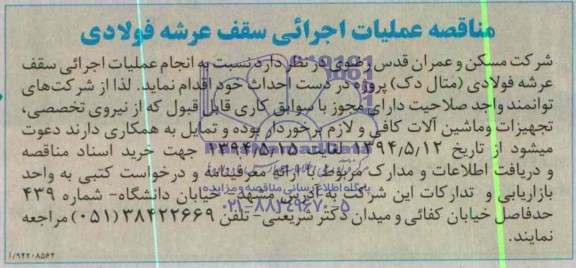 مناقصه عملیات اجرائی سقف عرشه فولادی
شرکت مسکن و عمران قدس رضوی در نظر دارد نسبت به انجام عملیات اجرائی سقف
عرشه فولادی (متال دک) پروژه در دست احداث خود اقدام نماید. لذا از شرکت‌های
توانمند واجد صلاحیت دارای مجوز با سوابق کاری قابل قبول که از نیروی تخصصی،
تجهیزات وماشین آلات کافی و لازم برخوردار بوده و تمایل به همکاری دارند دعوت
میشود از تاریخ ۱۳۹۴/۵/۱۲ لغایت ۱۳۹۴/۵/۱۵ جهت خرید اسناد مناقصه
و دریافت اطلاعات و مدارک مربوط با ارائه معرفی‌نامه و درخواست کتبی به واحد
پایگاه اطلاع رسانی مناقصه و مزایده
بازاریابی و تدارکات این شرکت به آدرس مشهد - خیابان دانشگاه- شماره ۴۳۹
۰۲۱-۸۸۳۴۹۶۷۰-۵
حدفاصل خیابان کفائی و میدان دکتر شریعتی- تلفن ۳۸۴۲۲۶۶۹(۰۵۱) مراجعه
نمایند.
۱/۹۴۲۰۸۵۶۲